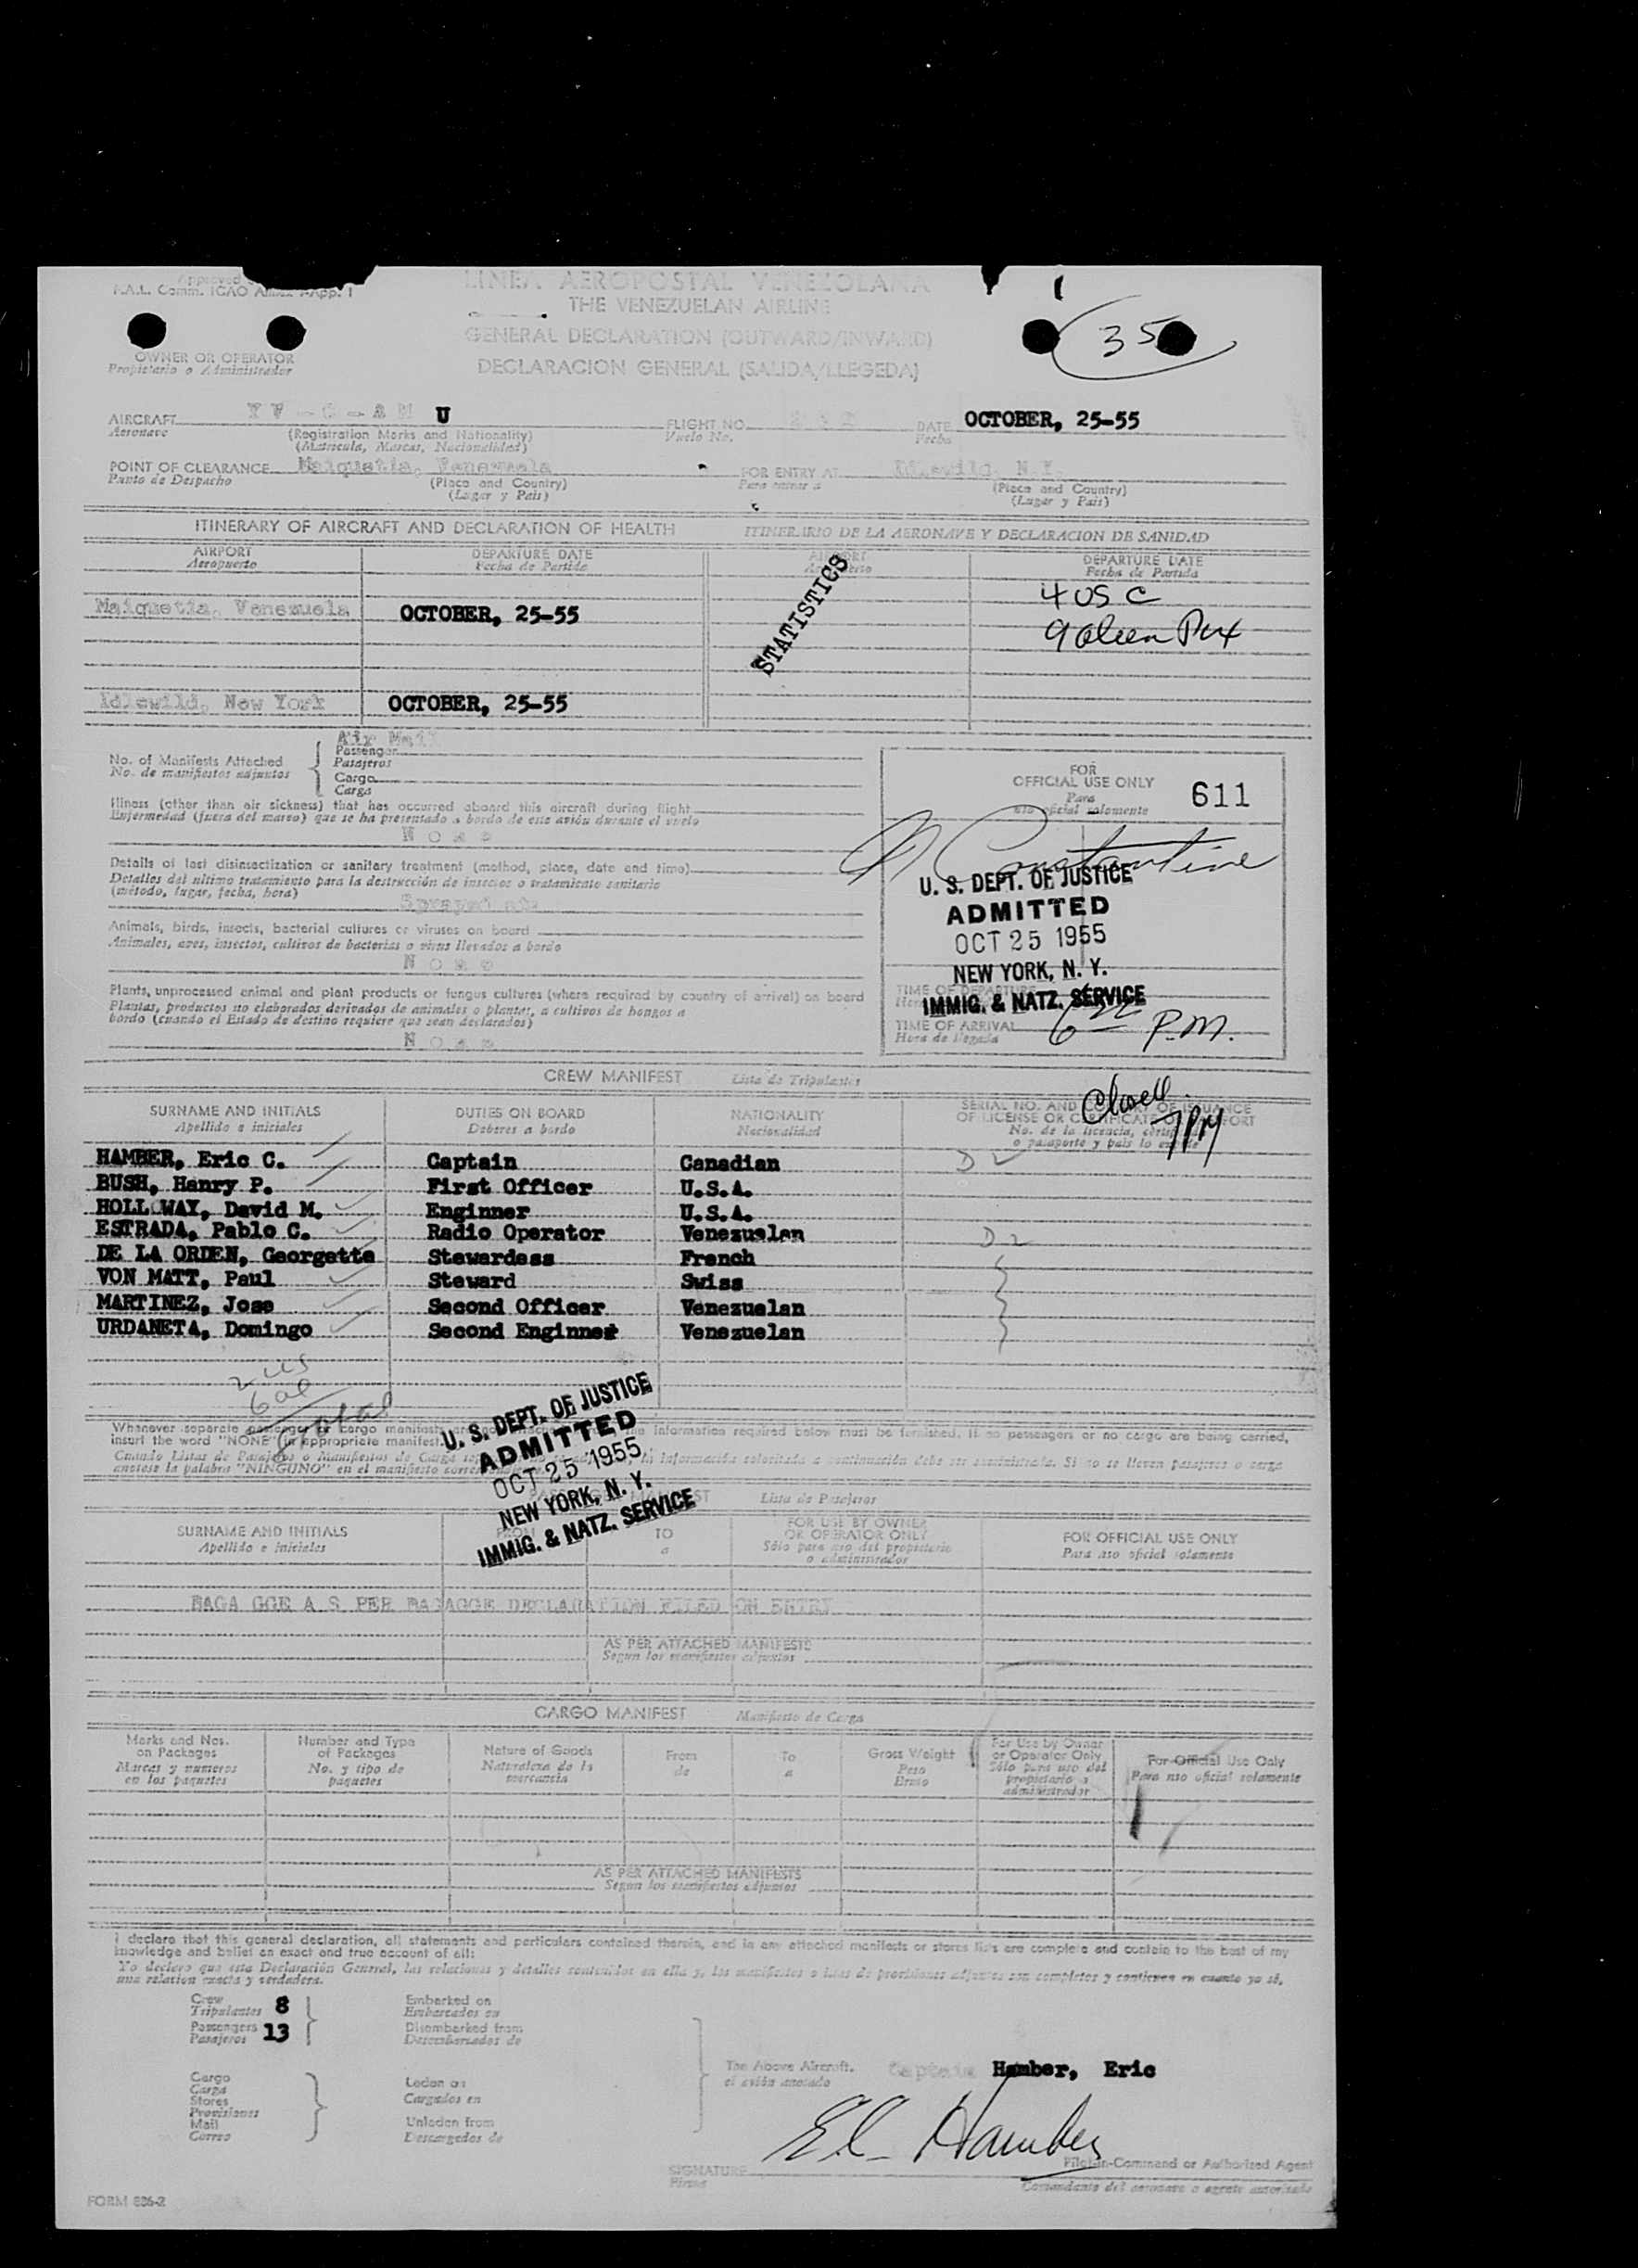 Approved
F.A.L. Comm. ICAO Annex App. 1
LINEA AEROPOSTAL VENEZOLANA
THE VENEZUELAN AIRLINE
GENERAL DECLARATION (OUTWARD/INWARD)
DECLARACION GENERAL (SALIDA/LLEGEDA)
35
OWNER OR OPERATOR
Propietario o Administrador
AIRCRAFT YV-C-AM U FLIGHT NO. DATE OCTOBER, 25-55
Aeronave (Registration Marks and Nationality) Vuelo No. Fecha
(Matricula, Marcas, Nacionalidad)
POINT OF CLEARANCE Maiquetia, Venezuela FOR ENTRY AT Idlewild, N.Y.
Punto de Despacho (Place and Country) Para entrar a (Place and Country)
(Lugar y Pais) (Lugar y Pais)
ITINERARY OF AIRCRAFT AND DECLARATION OF HEALTH ITINERARIO DE LA AERONAVE Y DECLARACION DE SANIDAD
AIRPORT DEPARTURE DATE AIRPORT DEPARTURE DATE
Aeropuerto Fecha de Partida Aeropuerto Fecha de Partida
STATISTICS
4 US C
Maiquetia, Venezuela OCTOBER, 25-55
9 alien Pax
Idlewild, New York OCTOBER, 25-55
Air Mail
No. of Manifests Attached Passenger
No. de manifiestos adjuntos Pasajeros
Cargo
Carga
FOR
OFFICIAL USE ONLY 611
Para
uso oficial solamente
Illness (other than air sickness) that has occurred aboard this aircraft during flight
Enfermedad (fuera del mareo) que se ha presentado a bordo de este avión durante el vuelo
None
Constantine
Details of last disinsectization or sanitary treatment (method, place, date and time)
Detalles del ultimo tratamiento para la destrucción de insectos o tratamiento sanitario
(método, lugar, fecha, hora)
Sprayed at:
U. S. DEPT. OF JUSTICE
ADMITTED
OCT 25 1955
NEW YORK, N. Y.
IMMIG. & NATZ. SERVICE
Animals, birds, insects, bacterial cultures or viruses on board
Animales, aves, insectos, cultivos de bacterias o virus llevados a bordo
None
Plants, unprocessed animal and plant products or fungus cultures (where required by country of arrival) on board
Plantas, productos no elaborados derivados de animales o plantas, a cultivos de hongos a
bordo (cuando el Estado de destino requiere que sean declarados)
None
TIME OF DEPARTURE
TIME OF ARRIVAL P.M.
Hora de llegada
CREW MANIFEST Lista de Tripulantes
SURNAME AND INITIALS DUTIES ON BOARD NATIONALITY SERIAL NO. AND COUNTRY OF ISSUANCE
OF LICENSE OR CERTIFICATE OR PASSPORT
Apellido e iniciales Deberes a bordo Nacionalidad No. de la licencia, certif
o pasaporte y pais lo
HAMBER, Eric C. Captain Canadian D 2
BUSH, Hanry P. First Officer U.S.A.
HOLLOWAY, David M. Enginner U.S.A.
ESTRADA, Pablo C. Radio Operator Venezuelan D 2
DE LA ORDEN, Georgette Stewardess French
VON MATT, Paul Steward Swiss
MARTINEZ, Jose Second Officer Venezuelan
URDANETA, Domingo Second Enginner Venezuelan
2 US
6 al
U. S. DEPT. OF JUSTICE
ADMITTED
OCT 25 1955
NEW YORK, N. Y.
IMMIG. & NATZ. SERVICE
Whenever separate passenger or cargo manifests information required below must be furnished. If no passengers or no cargo are being carried,
insert the word "NONE" in appropriate manifest.
Cuando Listas de Pasajeros o Manifiestos de Carga la información solicitada a continuación debe ser suministrada. Si no se lleven pasajeros o carga
anotese la palabra "NINGUNO" en el manifiesto
Lista de Pasajeros
SURNAME AND INITIALS FROM TO FOR USE BY OWNER OR OPERATOR ONLY FOR OFFICIAL USE ONLY
Apellido e iniciales a Sólo para uso del propietario o administrador Para uso oficial solamente
BAGA GGE A S PER BAGAGGE DECLARATION FILED ON ENTRY
AS PER ATTACHED MANIFESTS
Segun los manifiestos adjuntos
CARGO MANIFEST Manifiesto de Carga
Marks and Nos. on Packages Number and Type of Packages Nature of Goods From To Gross Weight For Use by Owner or Operator Only For Official Use Only
Marcas y numeros en los paquetes No. y tipo de paquetes Naturaleza de la mercancia de a Peso Bruto Sólo para uso del propietario o administrador Para uso oficial solamente
AS PER ATTACHED MANIFESTS
Segun los manifiestos adjuntos
I declare that this general declaration, all statements and particulars contained therein, and in any attached manifests or stores lists are complete and contain to the best of my
knowledge and belief an exact and true account of all:
Yo declaro que esta Declaración General, las relaciones y detalles contenidos en ella y, los manifiestos o listas de provisiones adjuntos son completos y contienen en cuanto yo sé,
una relation exacta y verdadera.
Crew 8 Embarked on
Tripulantes Embarcados en
Passengers 13 Disembarked from
Pasajeros Desembarcados de
The Above Aircraft. Captain Hamber, Eric
el avión anotado
Cargo Laden on
Carga
Stores Cargados en
Provisiones
Mail Unladen from
Correo Descargados de
E.C. Hamber
Pilot-in-Command or Authorized Agent
SIGNATURE
Firma Comandante del aeronave o agente autorizado
FORM 806-2